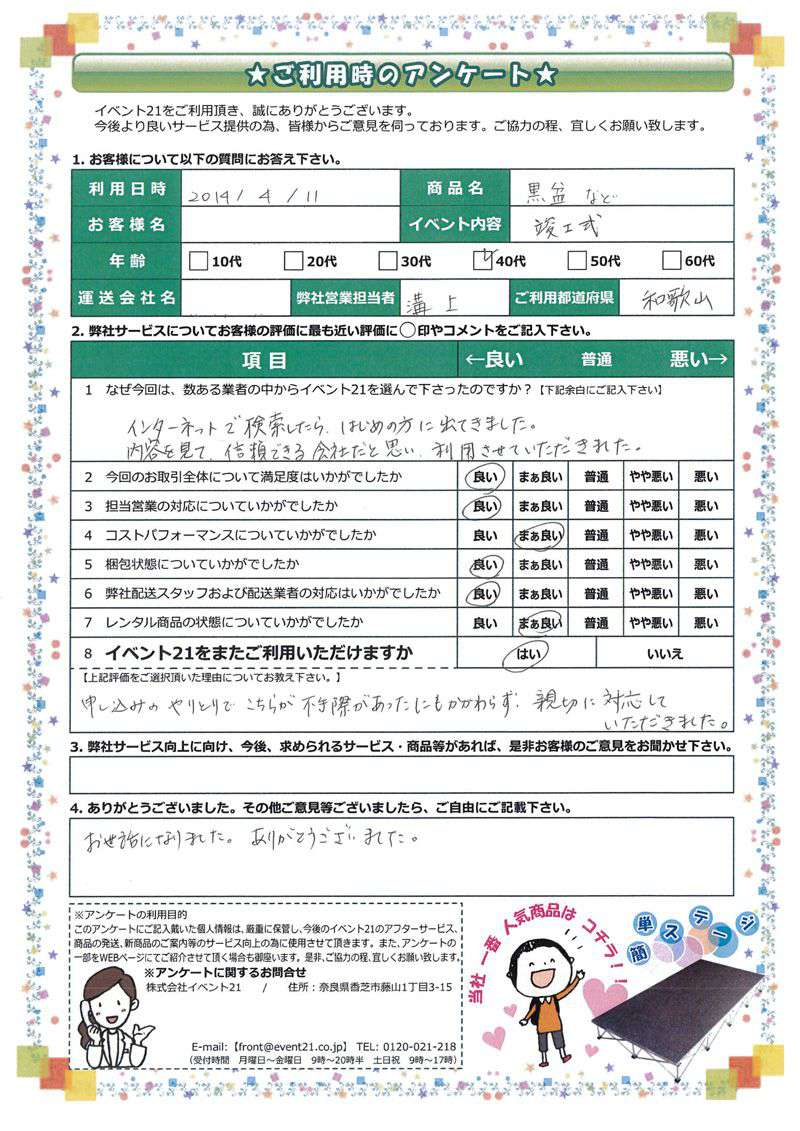 ★ご利用時のアンケート★
イベント21をご利用頂き、誠にありがとうございます。
今後より良いサービス提供の為、皆様からご意見を伺っております。ご協力の程、宜しくお願い致します。
1. お客様について以下の質問にお答え下さい。
利用日時 2014 / 4 / 11 商品名 黒盆 など
お客様名 イベント内容 竣工式
年齢 10代 20代 30代 40代 50代 60代
運送会社名 弊社営業担当者 溝上 ご利用都道府県 和歌山
2. 弊社サービスについてお客様の評価に最も近い評価に◯印やコメントをご記入下さい。
項目 ←良い 普通 悪い→
1 なぜ今回は、数ある業者の中からイベント21を選んで下さったのですか？【下記余白にご記入下さい】
インターネットで検索したら、はじめの方に出てきました。
内容を見て、信頼できる会社だと思い、利用させていただきました。
2 今回のお取引全体について満足度はいかがでしたか 良い まぁ良い 普通 やや悪い 悪い
3 担当営業の対応についていかがでしたか 良い まぁ良い 普通 やや悪い 悪い
4 コストパフォーマンスについていかがでしたか 良い まぁ良い 普通 やや悪い 悪い
5 梱包状態についていかがでしたか 良い まぁ良い 普通 やや悪い 悪い
6 弊社配送スタッフおよび配送業者の対応はいかがでしたか 良い まぁ良い 普通 やや悪い 悪い
7 レンタル商品の状態についていかがでしたか 良い まぁ良い 普通 やや悪い 悪い
8 イベント21をまたご利用いただけますか はい いいえ
【上記評価をご選択頂いた理由についてお教え下さい。】
申し込みの やりとりで こちらが 不手際があったにもかかわらず、親切に対応して
いただきました。
3. 弊社サービス向上に向け、今後、求められるサービス・商品等があれば、是非お客様のご意見をお聞かせ下さい。
4. ありがとうございました。その他ご意見等ございましたら、ご自由にご記載下さい。
お世話になりました。ありがとうございました。
※アンケートの利用目的
このアンケートにご記入戴いた個人情報は、厳重に保管し、今後のイベント21のアフターサービス、
商品の発送、新商品のご案内等のサービス向上の為に使用させて頂きます。また、アンケートの
一部をWEBページにてご紹介させて頂く場合も御座います。是非、ご協力の程、宜しくお願い致します。
※アンケートに関するお問合せ
株式会社イベント21 / 住所：奈良県香芝市藤山1丁目3-15
E-mail:【front@event21.co.jp】 TEL: 0120-021-218
(受付時間 月曜日～金曜日 9時～20時半 土日祝 9時～17時)
当社一番人気商品はコチラ！！
簡単ステージ